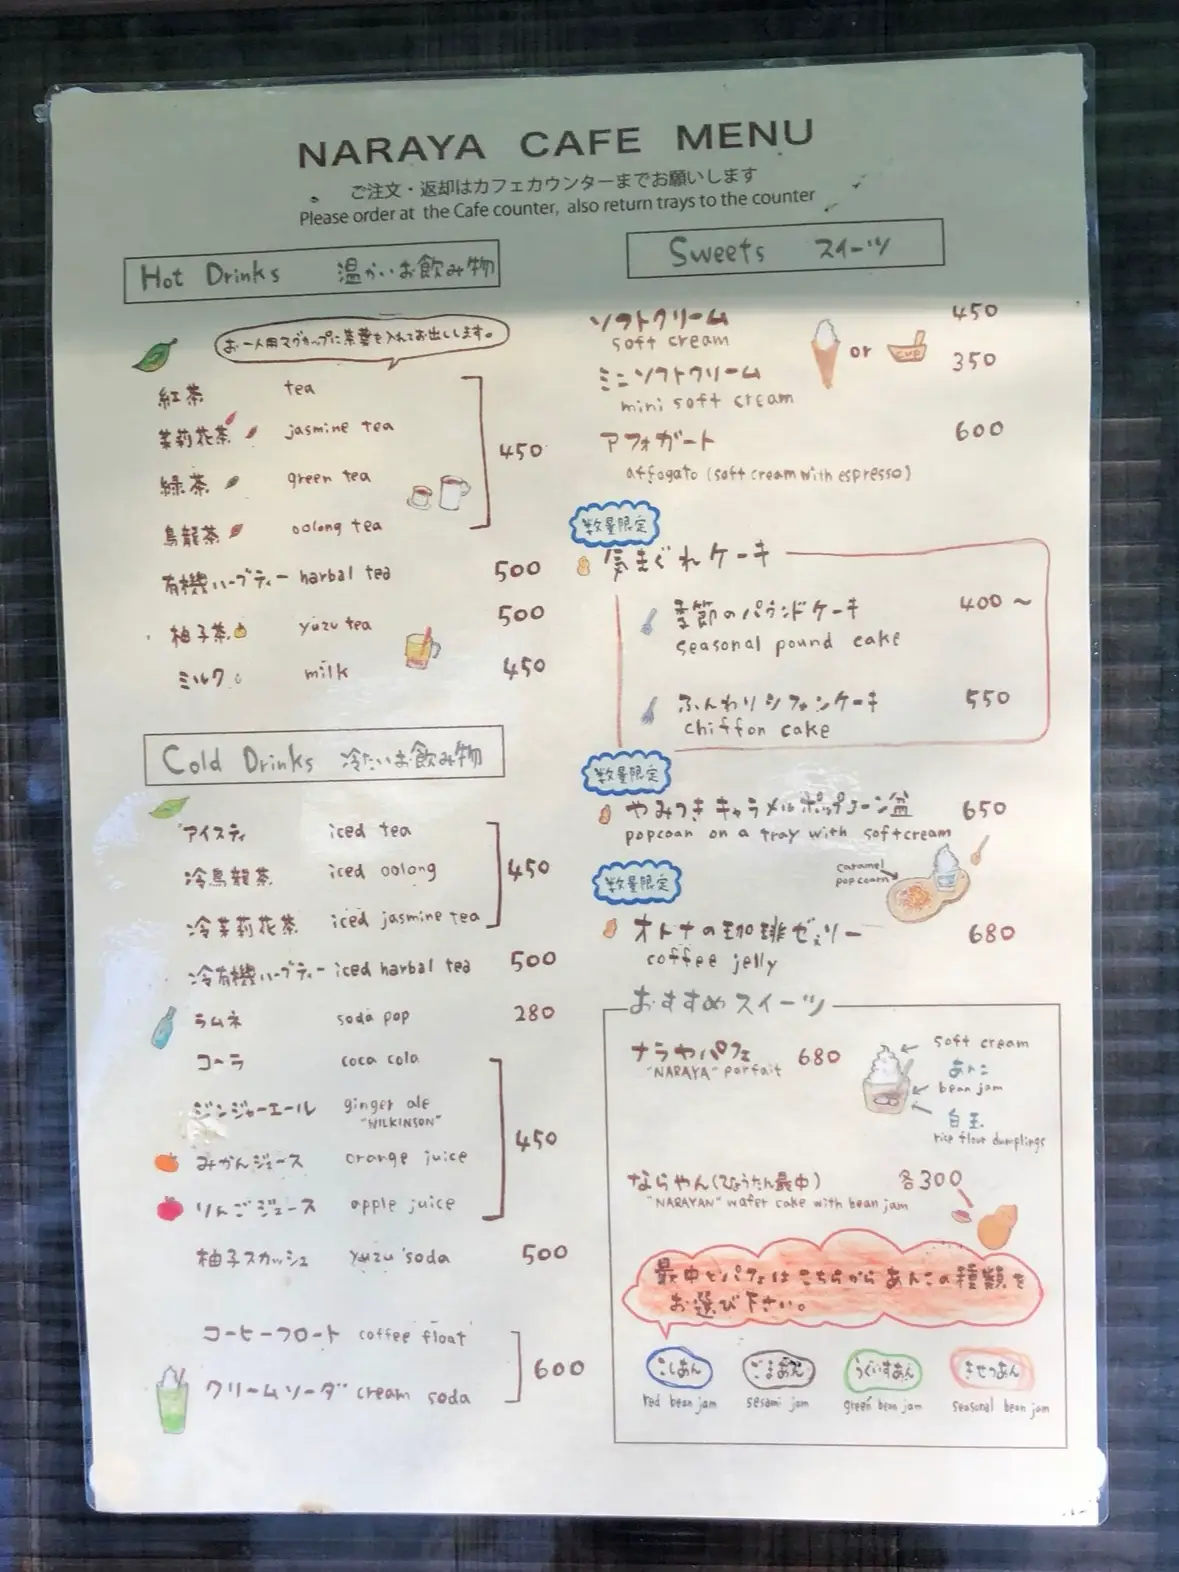 NARAYA CAFE MENU
ご注文・返却はカフェカウンターまでお願いします
Please order at the Cafe counter, also return trays to the counter
Hot Drinks 温かいお飲み物
お一人用マグカップに茶葉を入れてお出しします。
紅茶 tea
茉莉花茶 jasmine tea
緑茶 green tea
烏龍茶 oolong tea
450
有機ハーブティー harbal tea 500
柚子茶 yuzu tea 500
ミルク milk 450
Cold Drinks 冷たいお飲み物
アイスティ iced tea
冷烏龍茶 iced oolong
冷茉莉花茶 iced jasmine tea
450
冷有機ハーブティー iced harbal tea 500
ラムネ soda pop 280
コーラ coca cola
ジンジャーエール ginger ale
"WILKINSON"
みかんジュース orange juice
りんごジュース apple juice
450
柚子スカッシュ yuzu soda 500
コーヒーフロート coffee float
クリームソーダ cream soda
600
Sweets スイーツ
ソフトクリーム 450
soft cream
or
cup
ミニソフトクリーム 350
mini soft cream
アフォガート 600
affogato (soft cream with espresso)
数量限定
気まぐれケーキ
季節のパウンドケーキ 400~
seasonal pound cake
ふんわりシフォンケーキ 550
chiffon cake
数量限定
やみつきキャラメルポップコーン盆 650
popcoan on a tray with softcream
caramel
popcoarn
数量限定
オトナの珈琲ゼリー 680
coffee jelly
おすすめスイーツ
ナラヤパフェ 680
"NARAYA" parfait
soft cream
あんこ
bean jam
白玉
rice flour dumplings
ならやん(ひょうたん最中) 各300
"NARAYAN" wafer cake with bean jam
最中とパフェはこちらからあんこの種類を
お選び下さい。
こしあん ごまあん うぐいすあん きせつあん
red bean jam sesami jam green bean jam seasonal bean jam